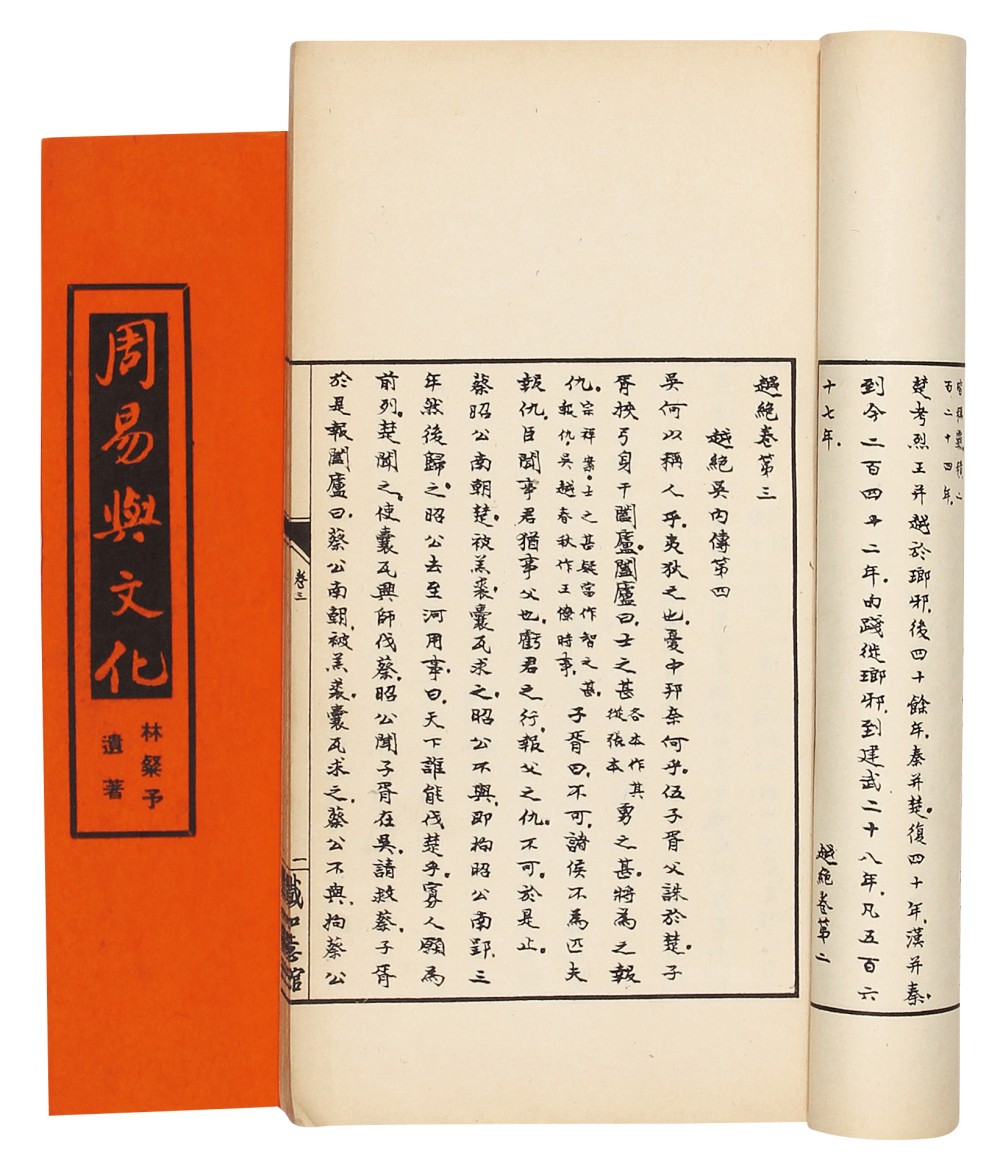 周易與文化
林粲予
遺著
百二十四年。
楚考烈王并越於瑯邪，後四十餘年，秦并楚。復四十年，漢并秦。
到今二百四十二年。句踐徙瑯邪，到建武二十八年，凡五百六
十七年。
越絕卷第二
越絕卷第三
越絕吳內傳第四
吳何以稱人乎，夷狄之也。憂中邦奈何乎。伍子胥父誅於楚，子
胥挾弓身干闔廬。闔廬曰，士之甚 各本作其從張本 勇之甚。將為之報
仇。宗祥案，士之甚疑當作智之甚。報仇，吳越春秋作王僚時事。 子胥曰，不可，諸侯不為匹夫
報仇。臣聞事君猶事父也，虧君之行，報父之仇，不可。於是止。
蔡昭公南朝楚，被羔裘，囊瓦求之，昭公不與，即拘昭公南郢，三
年然後歸之。昭公去至河，用事，曰，天下誰能伐楚乎，寡人願為
前列。楚聞之，使囊瓦興師伐蔡。昭公聞子胥在吳，請救蔡，子胥
於是報闔廬曰，蔡公南朝，被羔裘，囊瓦求之，蔡公不與，拘蔡公
卷三
一